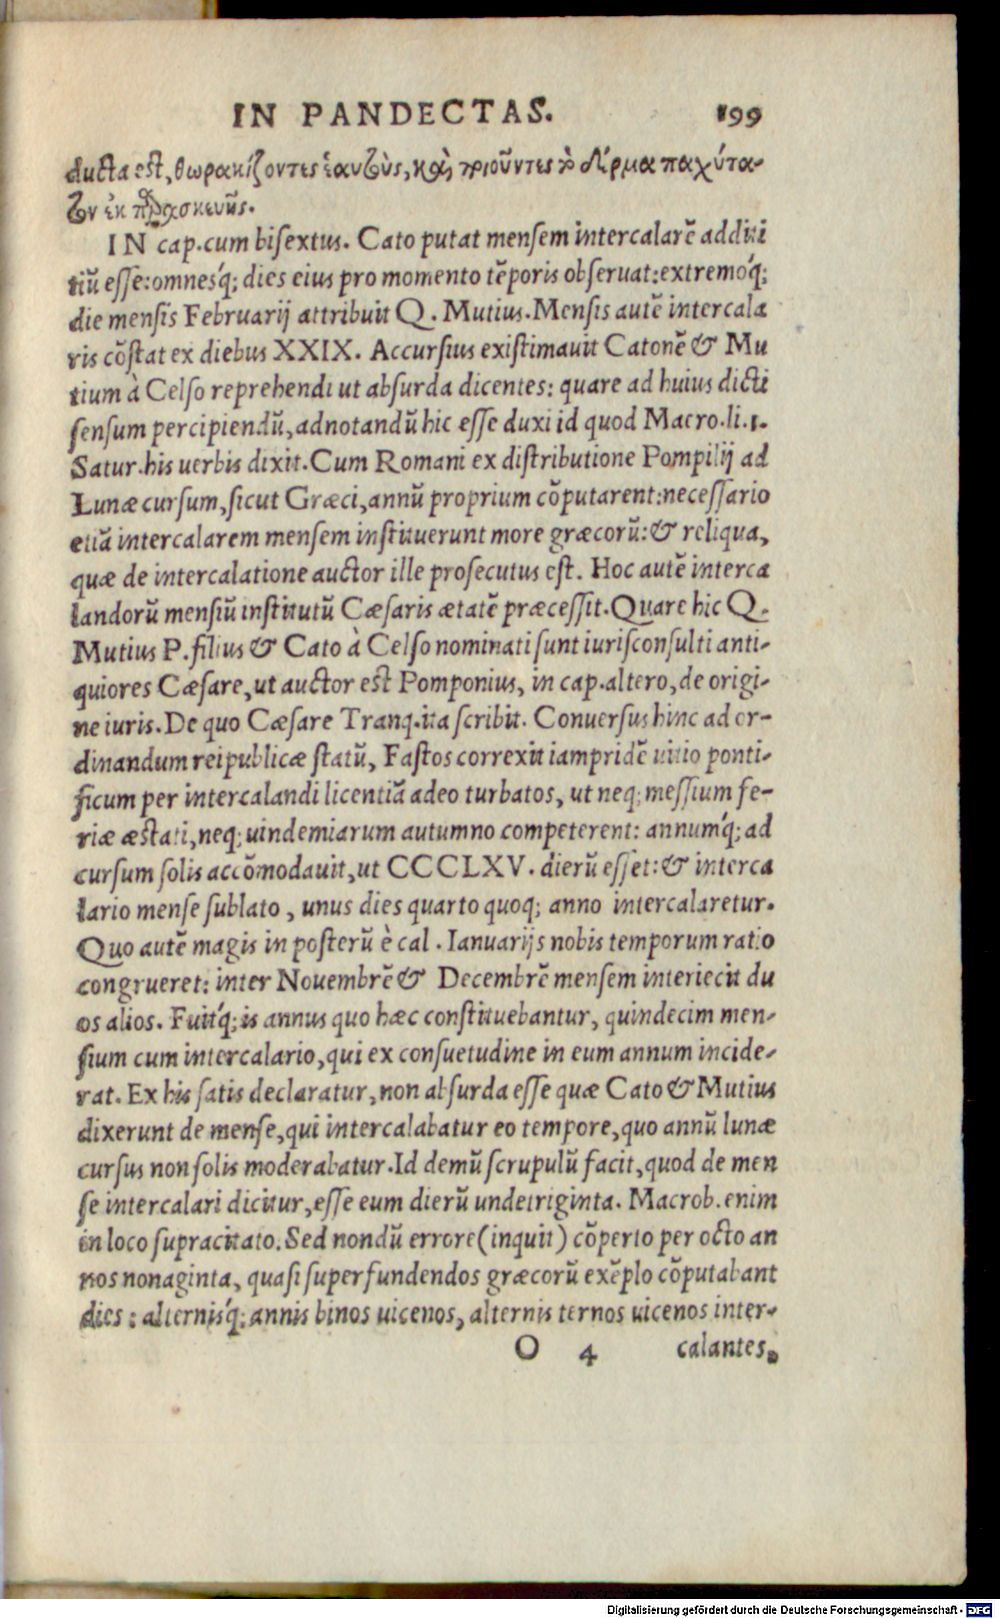 IN PANDECTAS. 199
ducta est, θωρακίζοντες ἑαυτοὺς, καὶ ποιοῦντες τὸ δέρμα παχύτα-
τον ἐκ παρασκευῆς.
IN cap. cum bisextus. Cato putat mensem intercalarē additi
tiū esse: omnesq́; dies eius pro momento tēporis observat: extremoq́;
die mensis Februarij attribuit Q. Mutius. Mensis autē intercala
ris cōstat ex diebus XXIX. Accursius existimavit Catonē & Mu
tium à Celso reprehendi ut absurda dicentes: quare ad huius dicti
sensum percipiendū, adnotandū hic esse duxi id quod Macro. li. 1.
Satur. his uerbis dixit. Cum Romani ex distributione Pompilij ad
Lunæ cursum, sicut Græci, annū proprium cōputarent: necessario
etiā intercalarem mensem instituerunt more græcorū: & reliqua,
quæ de intercalatione auctor ille prosecutus est. Hoc autē interca
landorū mensiū institutū Cæsaris ætatē præcessit. Quare hic Q.
Mutius P. filius & Cato à Celso nominati sunt iurisconsulti anti-
quiores Cæsare, ut auctor est Pomponius, in cap. altero, de origi-
ne iuris. De quo Cæsare Tranq. ita scribit. Conuersus hinc ad or-
dinandum reipublicæ statū, Fastos correxit iampridē uitio ponti-
ficum per intercalandi licentiā adeo turbatos, ut neq; messium fe-
riæ æstati, neq; uindemiarum autumno competerent: annumq́; ad
cursum solis accōmodavit, ut CCCLXV. dierū esset: & interca
lario mense sublato, unus dies quarto quoq; anno intercalaretur.
Quo autē magis in posterū è cal. Ianuarijs nobis temporum ratio
congrueret: inter Novembrē & Decembrē mensem interiecit du
os alios. Fuitq́; is annus quo hæc constituebantur, quindecim men-
sium cum intercalario, qui ex consuetudine in eum annum incide-
rat. Ex his satis declaratur, non absurda esse quæ Cato & Mutius
dixerunt de mense, qui intercalabatur eo tempore, quo annū lunæ
cursus non solis moderabatur. Id demū scrupulū facit, quod de men
se intercalari dicitur, esse eum dierū undetriginta. Macrob. enim
in loco supracitato. Sed nondū errore (inquit) cōperto per octo an
nos nonaginta, quasi superfundendos græcorū exēplo cōputabant
dies: alternisq́; annis binos uicenos, alternis ternos uicenos inter-
O 4 calantes,
Digitalisierung gefördert durch die Deutsche Forschungsgemeinschaft - DFG